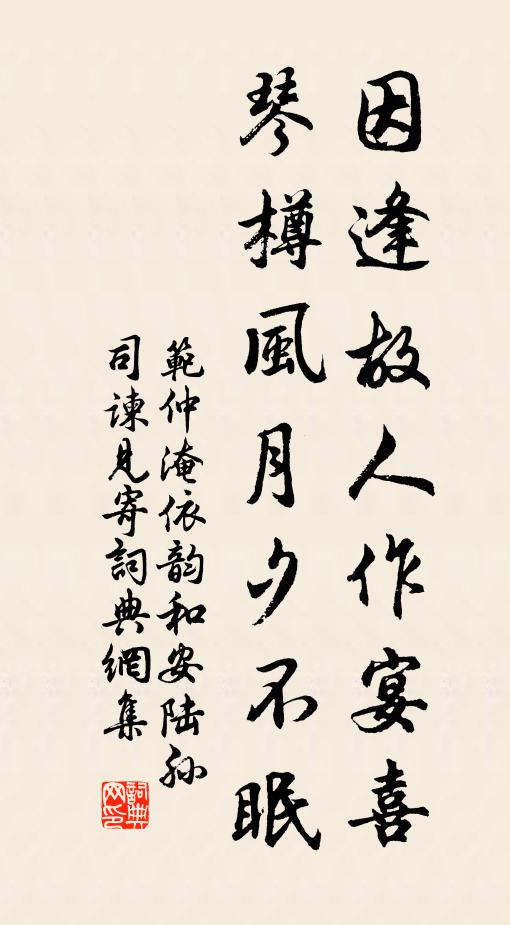 因逢故人作宴喜
琴樽風月夕不眠
範仲淹依韵和安陸孫
司諫見寄詞典網集
詞典
网印